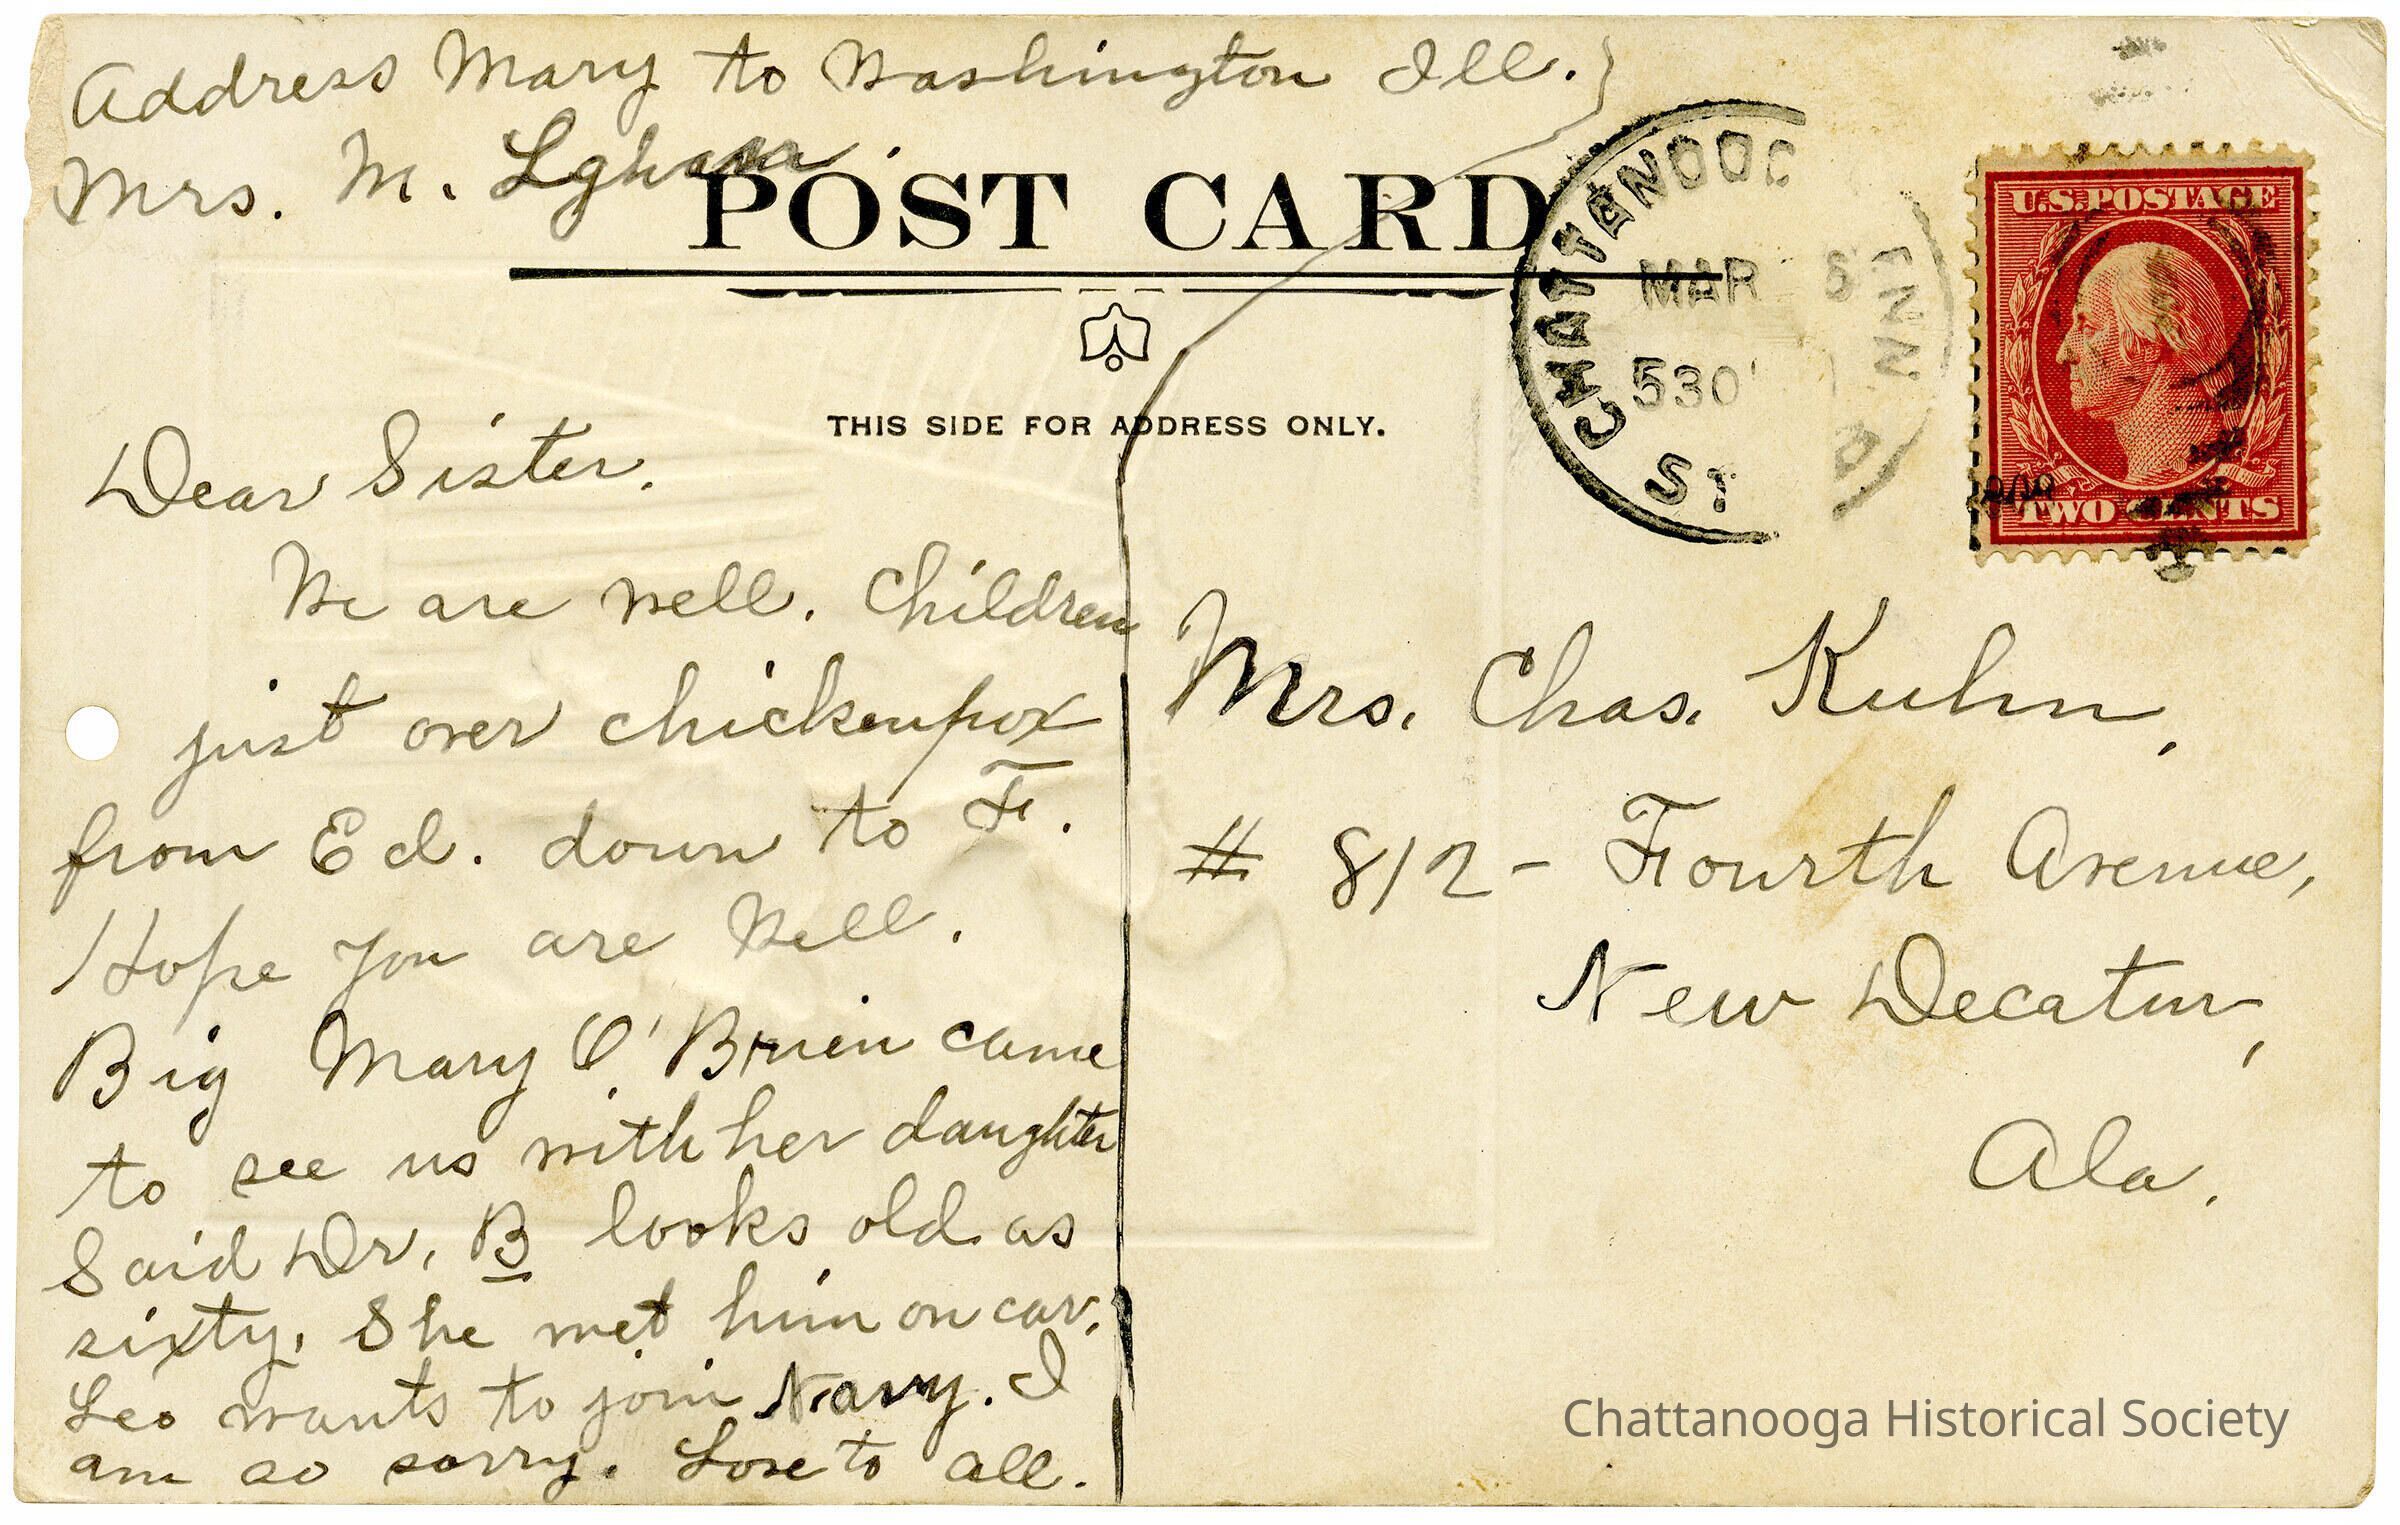 Address Mary to Washington Ill.
Mrs. M.
POST CARD
THIS SIDE FOR ADDRESS ONLY.
CHATTANOOG
TENN
MAR 6
530
ST
U.S. POSTAGE
TWO CENTS
Dear Sister.
We are well. Children
just over chickenpox
from Ed. down to F.
Hope you are Well.
Big Mary O'Brien came
to see us with her daughter
Said Dr. B looks old as
sixty. She met him on car.
Leo wants to join Navy. I
am so sorry. Love to all.
Mrs. Chas. Kuhn,
# 812 - Fourth Avenue,
New Decatur,
Ala.
Chattanooga Historical Society